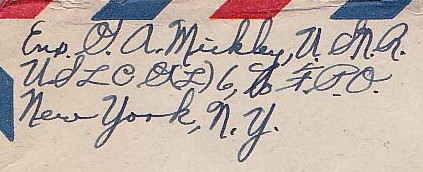 Ens. O. A. Mickley, U.S.N.R.
USLCS(L) 6, % F.P.O.
New York, N.Y.